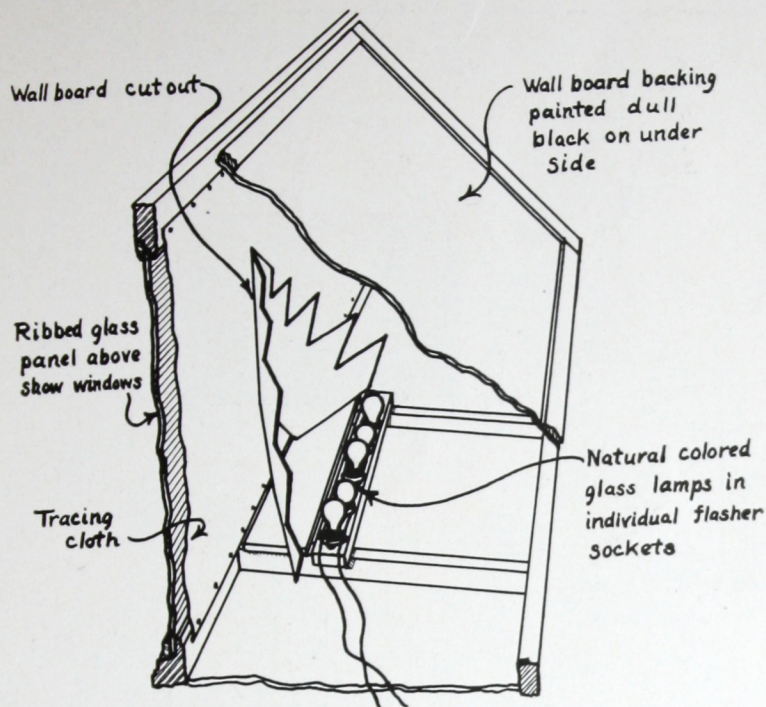 Wall board cut out
Wall board backing
painted dull
black on under
side
Ribbed glass
panel above
show windows
Tracing
cloth
Natural colored
glass lamps in
individual flasher
sockets